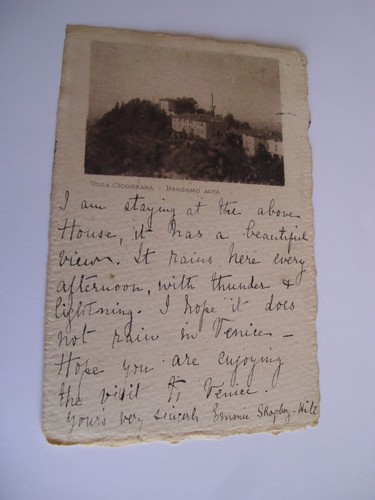 VILLA CICOGNARA - BERGAMO ALTA
I am staying at the above
House, it has a beautiful
view. It rains here every
afternoon, with thunder &
lightning. I hope it does
not rain in Venice –
Hope you are enjoying
the visit to Venice.
Yours very sincerely